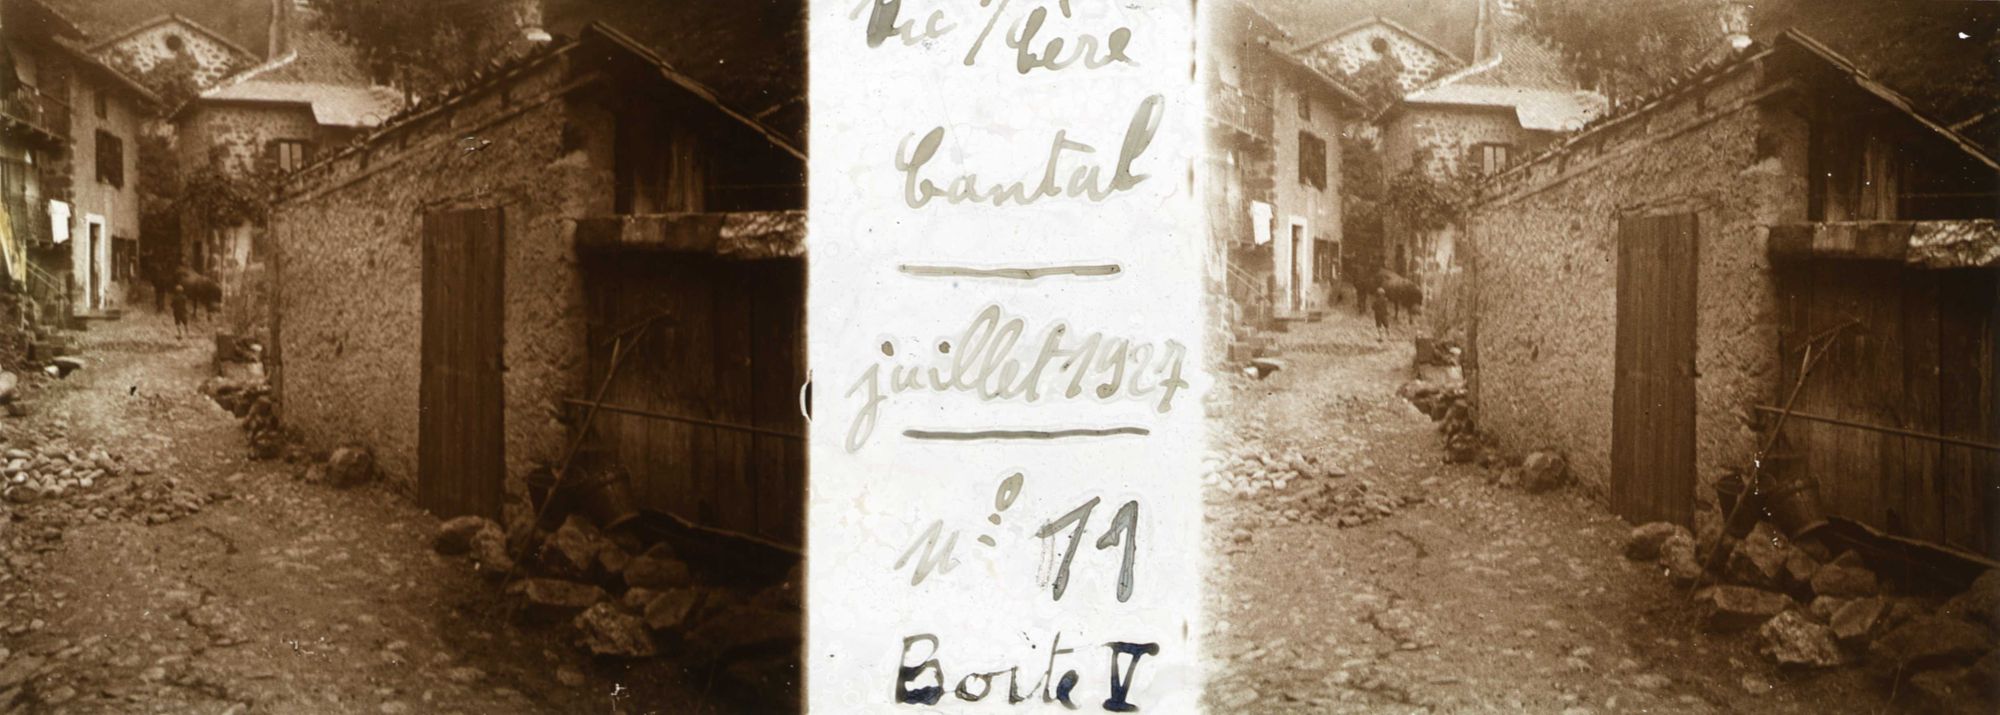 Vic s/ Cère
Cantal
juillet 1927
n° 11
Boite V